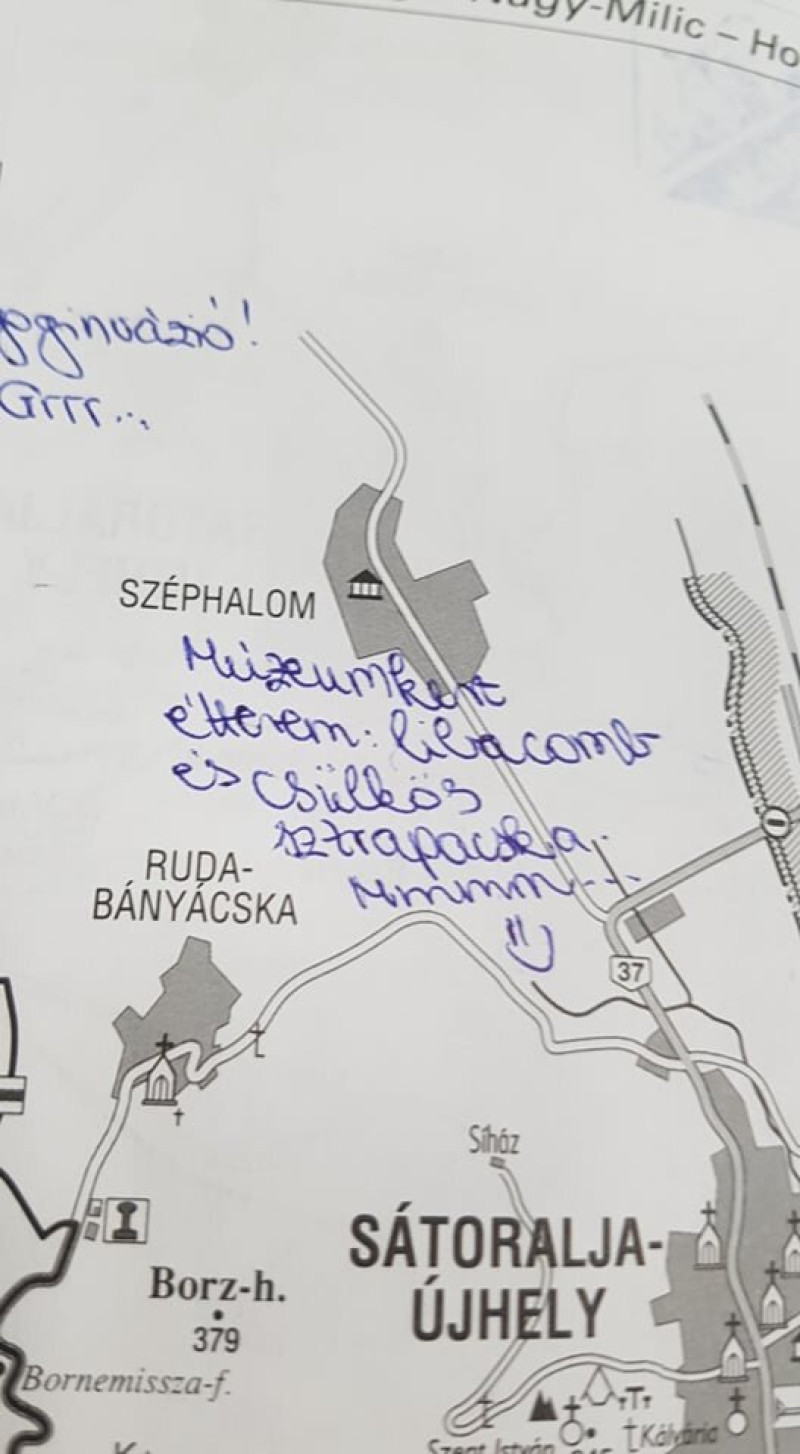 Nagy-Milic – Ho
goginvázió!
Grrr...
SZÉPHALOM
Múzeumkert
étterem: libacomb
és csülkös
sztrapacska.
Mmmm...
RUDA-
BÁNYÁCSKA
37
Síház
SÁTORALJA-
ÚJHELY
Borz-h.
379
Bornemissza-f.
Szent István
Kálvária